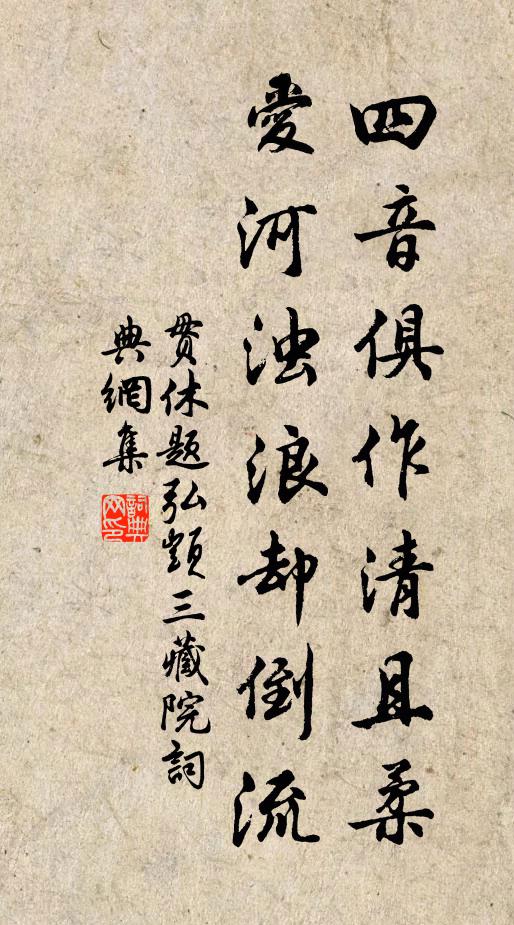 四音俱作清且柔
愛河浊浪却倒流
贯休题弘顗三藏院詞
典網集
詞典網印